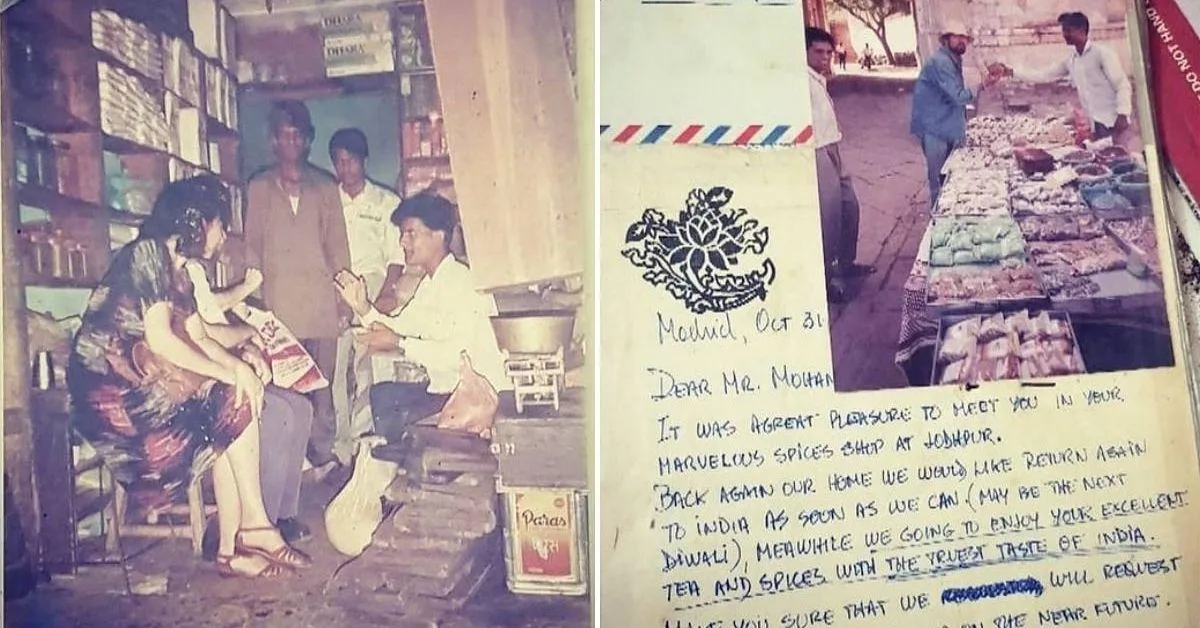 DHARA
DHARA
Paras
पारस
DO NOT HAND
Madrid, Oct 31
DEAR MR. MOHAN
IT WAS AGREAT PLEASURE TO MEET YOU IN YOUR
MARVELOUS SPICES SHOP AT JODHPUR.
BACK AGAIN OUR HOME WE WOULD LIKE RETURN AGAIN
TO INDIA AS SOON AS WE CAN (MAY BE THE NEXT
DIWALI), MEAWHILE WE GOING TO ENJOY YOUR EXCELLENT
TEA AND SPICES WITH THE TRUEST TASTE OF INDIA.
YOU SURE THAT WE WILL REQUEST
THE NEAR FUTURE.